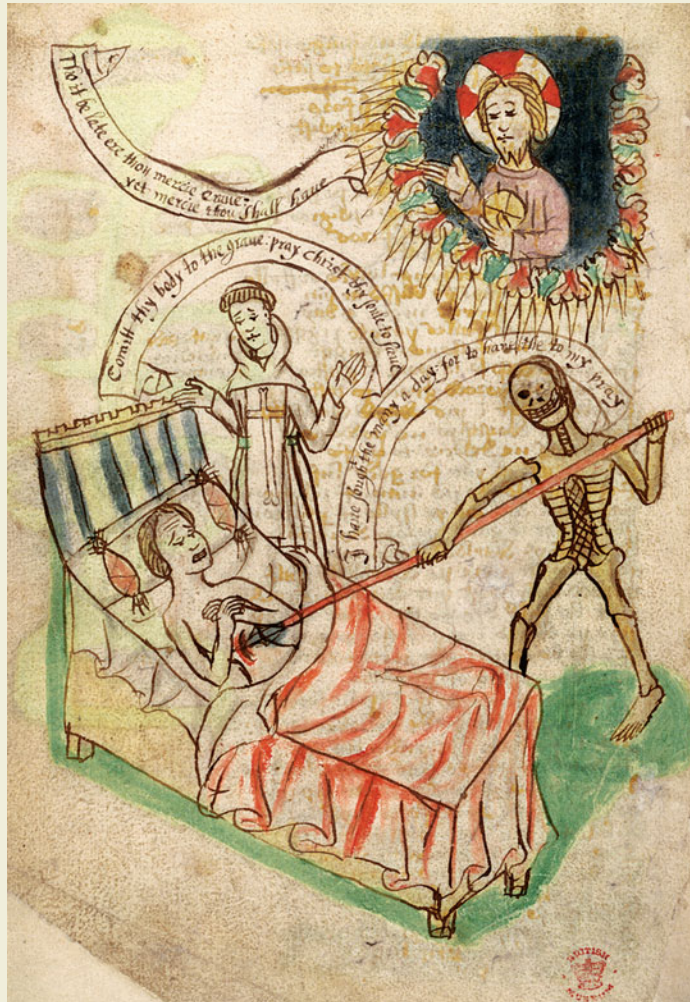 Tho it be late ere thou mercie craue:
yet mercie thou shall haue
Comitt thy body to the graue: pray Christ thy soule to saue
I haue sought the many a day: for to haue the to my pray
BRITISH
MUSEUM